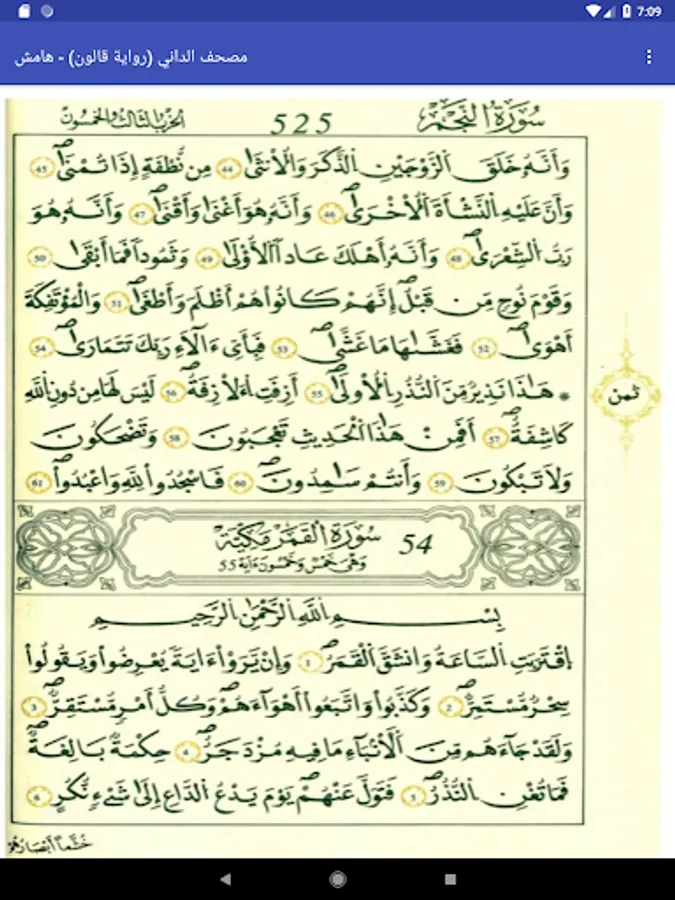 7:09
مصحف الداني (رواية قالون) - هامش
سُورَةُ النَّجْمِ 525 الحزب الثالث والخمسون
وَأَنَّهُ خَلَقَ اَلزَّوْجَيْنِ اِلذَّكَرَ وَالْأُنثَىٰ 44 مِن نُّطْفَةٍ إِذَا تُمْنَىٰ 45
وَأَنَّ عَلَيْهِ اِلنَّشْأَةَ اَلْأُخْرَىٰ 46 وَأَنَّهُ هُوَ أَغْنَىٰ وَأَقْنَىٰ 47 وَأَنَّهُ هُوَ
رَبُّ اُلشِّعْرَىٰ 48 وَأَنَّهُ أَهْلَكَ عَاداً اَلْأُولَىٰ 49 وَثَمُوداً فَمَا أَبْقَىٰ 50
وَقَوْمَ نُوحٍ مِّن قَبْلُ إِنَّهُمْ كَانُوا هُمْ أَظْلَمَ وَأَطْغَىٰ 51 وَالْمُوتَفِكَةَ
أَهْوَىٰ 52 فَغَشَّىٰهَا مَا غَشَّىٰ 53 فَبِأَيِّ ءَالَآءِ رَبِّكَ تَتَمَارَىٰ 54
* هَٰذَا نَذِيرٌ مِّنَ اَلنُّذُرِ اِلْأُولَىٰ 55 أَزِفَتِ اِلَازِفَةُ 56 لَيْسَ لَهَا مِن دُونِ اِللَّهِ
ثمن
كَاشِفَةٌ 57 أَفَمِنْ هَٰذَا اَلْحَدِيثِ تَعْجَبُونَ 58 وَتَضْحَكُونَ
وَلَا تَبْكُونَ 59 وَأَنتُمْ سَٰمِدُونَ 60 فَاسْجُدُوا لِلَّهِ وَاعْبُدُوا 61
سُورَةُ القَمَرِ مَكِّيَّة 54
وَهْيَ خَمْسٌ وَخَمْسُونَ ءَايَة 55
بِسْمِ اِللَّهِ اِلرَّحْمَٰنِ اِلرَّحِيمِ
اِقْتَرَبَتِ اِلسَّاعَةُ وَانشَقَّ اَلْقَمَرُ 1 وَإِنْ يَّرَوْا ءَايَةً يُعْرِضُوا وَيَقُولُوا
سِحْرٌ مُّسْتَمِرٌّ 2 وَكَذَّبُوا وَاتَّبَعُوا أَهْوَآءَهُمْ وَكُلُّ أَمْرٍ مُّسْتَقِرٌّ 3
وَلَقَدْ جَآءَهُم مِّنَ اَلْأَنۢبَآءِ مَا فِيهِ مُزْدَجَرٌ 4 حِكْمَةٌ بَالِغَةٌ
فَمَا تُغْنِ اِلنُّذُرُ 5 فَتَوَلَّ عَنْهُمْ يَوْمَ يَدْعُ اُلدَّاعِ إِلَىٰ شَيْءٍ نُّكُرٍ 6
خُشَّعاً أَبْصَارُهُمْ